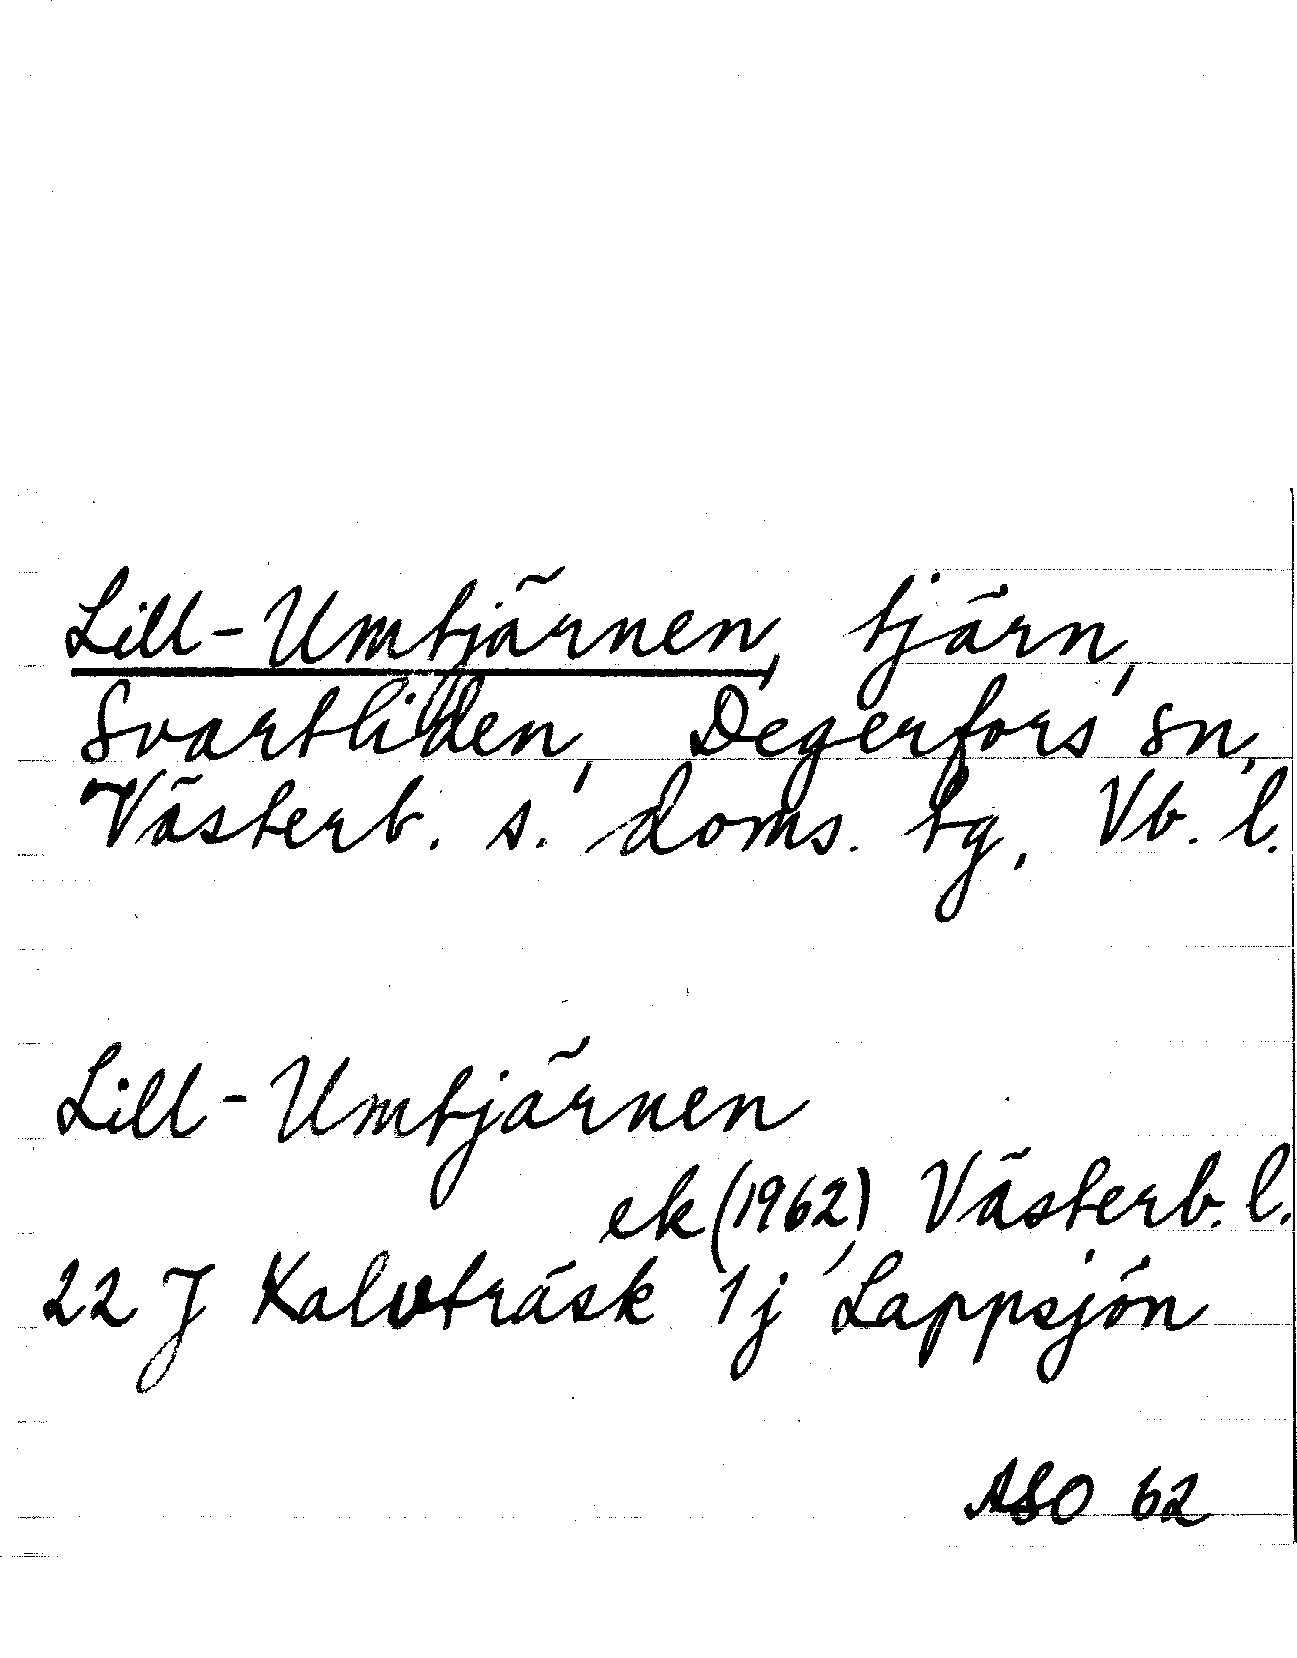 Lill-Umtjärnen, tjärn,
Svartliden, Degerfors sn,
Västerb. s. doms. tg, Vb. l.
Lill-Umtjärnen
ek (1962) Västerb. l.
22 J Kalvträsk 1j, Lappsjön
ASO 62